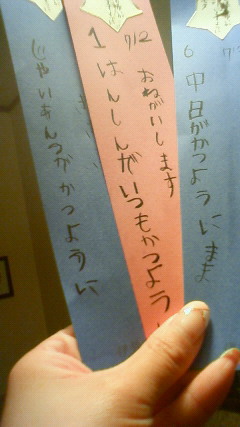 6 7/12
中日がかつように まま
1 7/12
おねがいします
はんしんがいつもかつよう
じゃいあんつがかつように